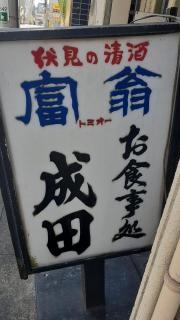 伏見の清酒
富翁
トミオー
お食事処
成田